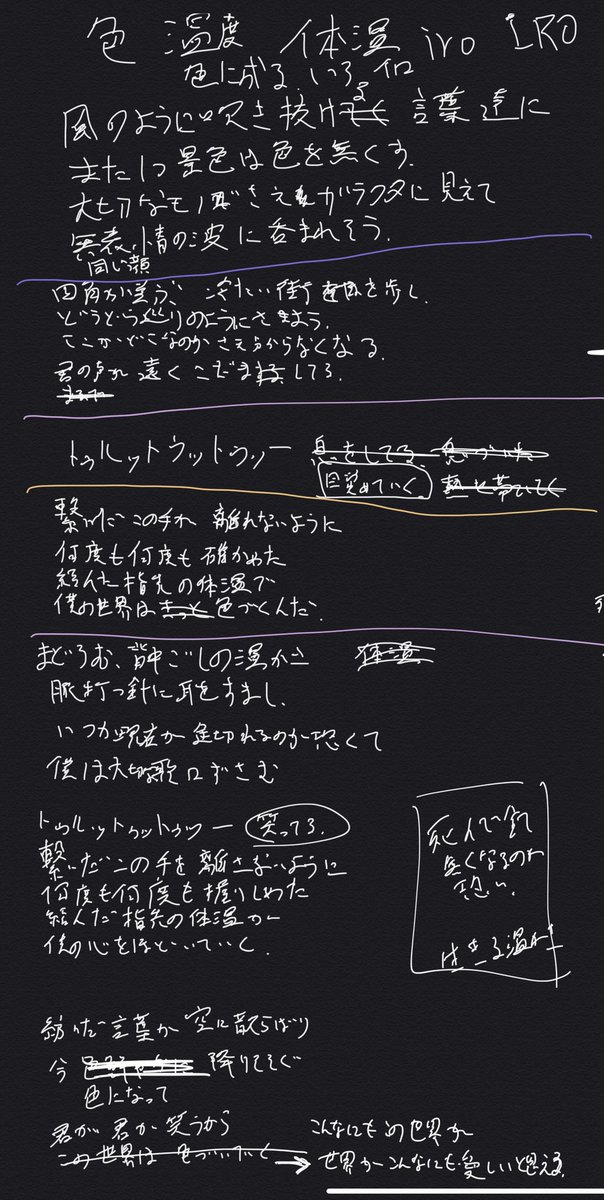 色 温度 体温 iro IRO
色に成る、いろ、イロ
風のように吹き抜けてく 言葉達に
また1つ景色は色を無くす.
大切なモノさえガラクタに見えて
無表情の波に呑まれそう.
同じ顔
四角が並ぶ、冷たい街を歩く.
どうどう巡りのようにさまよう.
ここがどこなのかさえ分からなくなる.
君の声が遠くこだましてる.
まるで
トゥルットゥットゥッー 息をしてる 息づいた
目覚めていく
繋いだこの手が離れないように
何度も何度も確かめた
結んだ指先の体温で
僕の世界はきっと色づくんだ.
まどろむ、背中ごしの温かさ 体温
脈打つ針に耳をすまし、
いつか現在が途切れるのが恐くて
僕は大切な歌口ずさむ
トゥルットゥットゥッー 笑ってる.
繋いだこの手を離さないように
何度も何度も握りしめた
結んだ指先の体温が
僕の心をほどいていく.
死んで全て
無くなるのが
恐い.
生きる温か
紡いだ言葉が空に散らばり
今 降りそそぐ
色になって
君が 君が笑うから こんなにもこの世界が
この世界は色づいていく → 世界がこんなにも愛しいと思える.